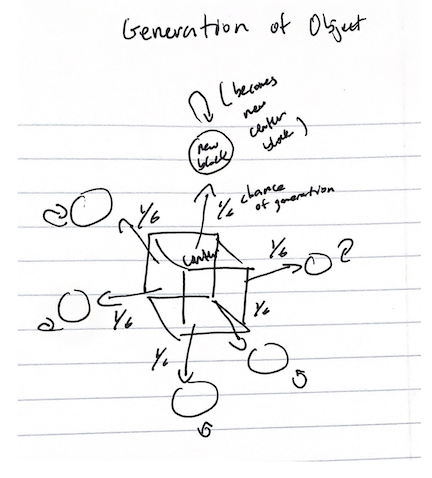 Generation of Object
(becomes
new
center
block)
new
block
1/6 chance
of generation
1/6
center
1/6
1/6
1/6
1/6